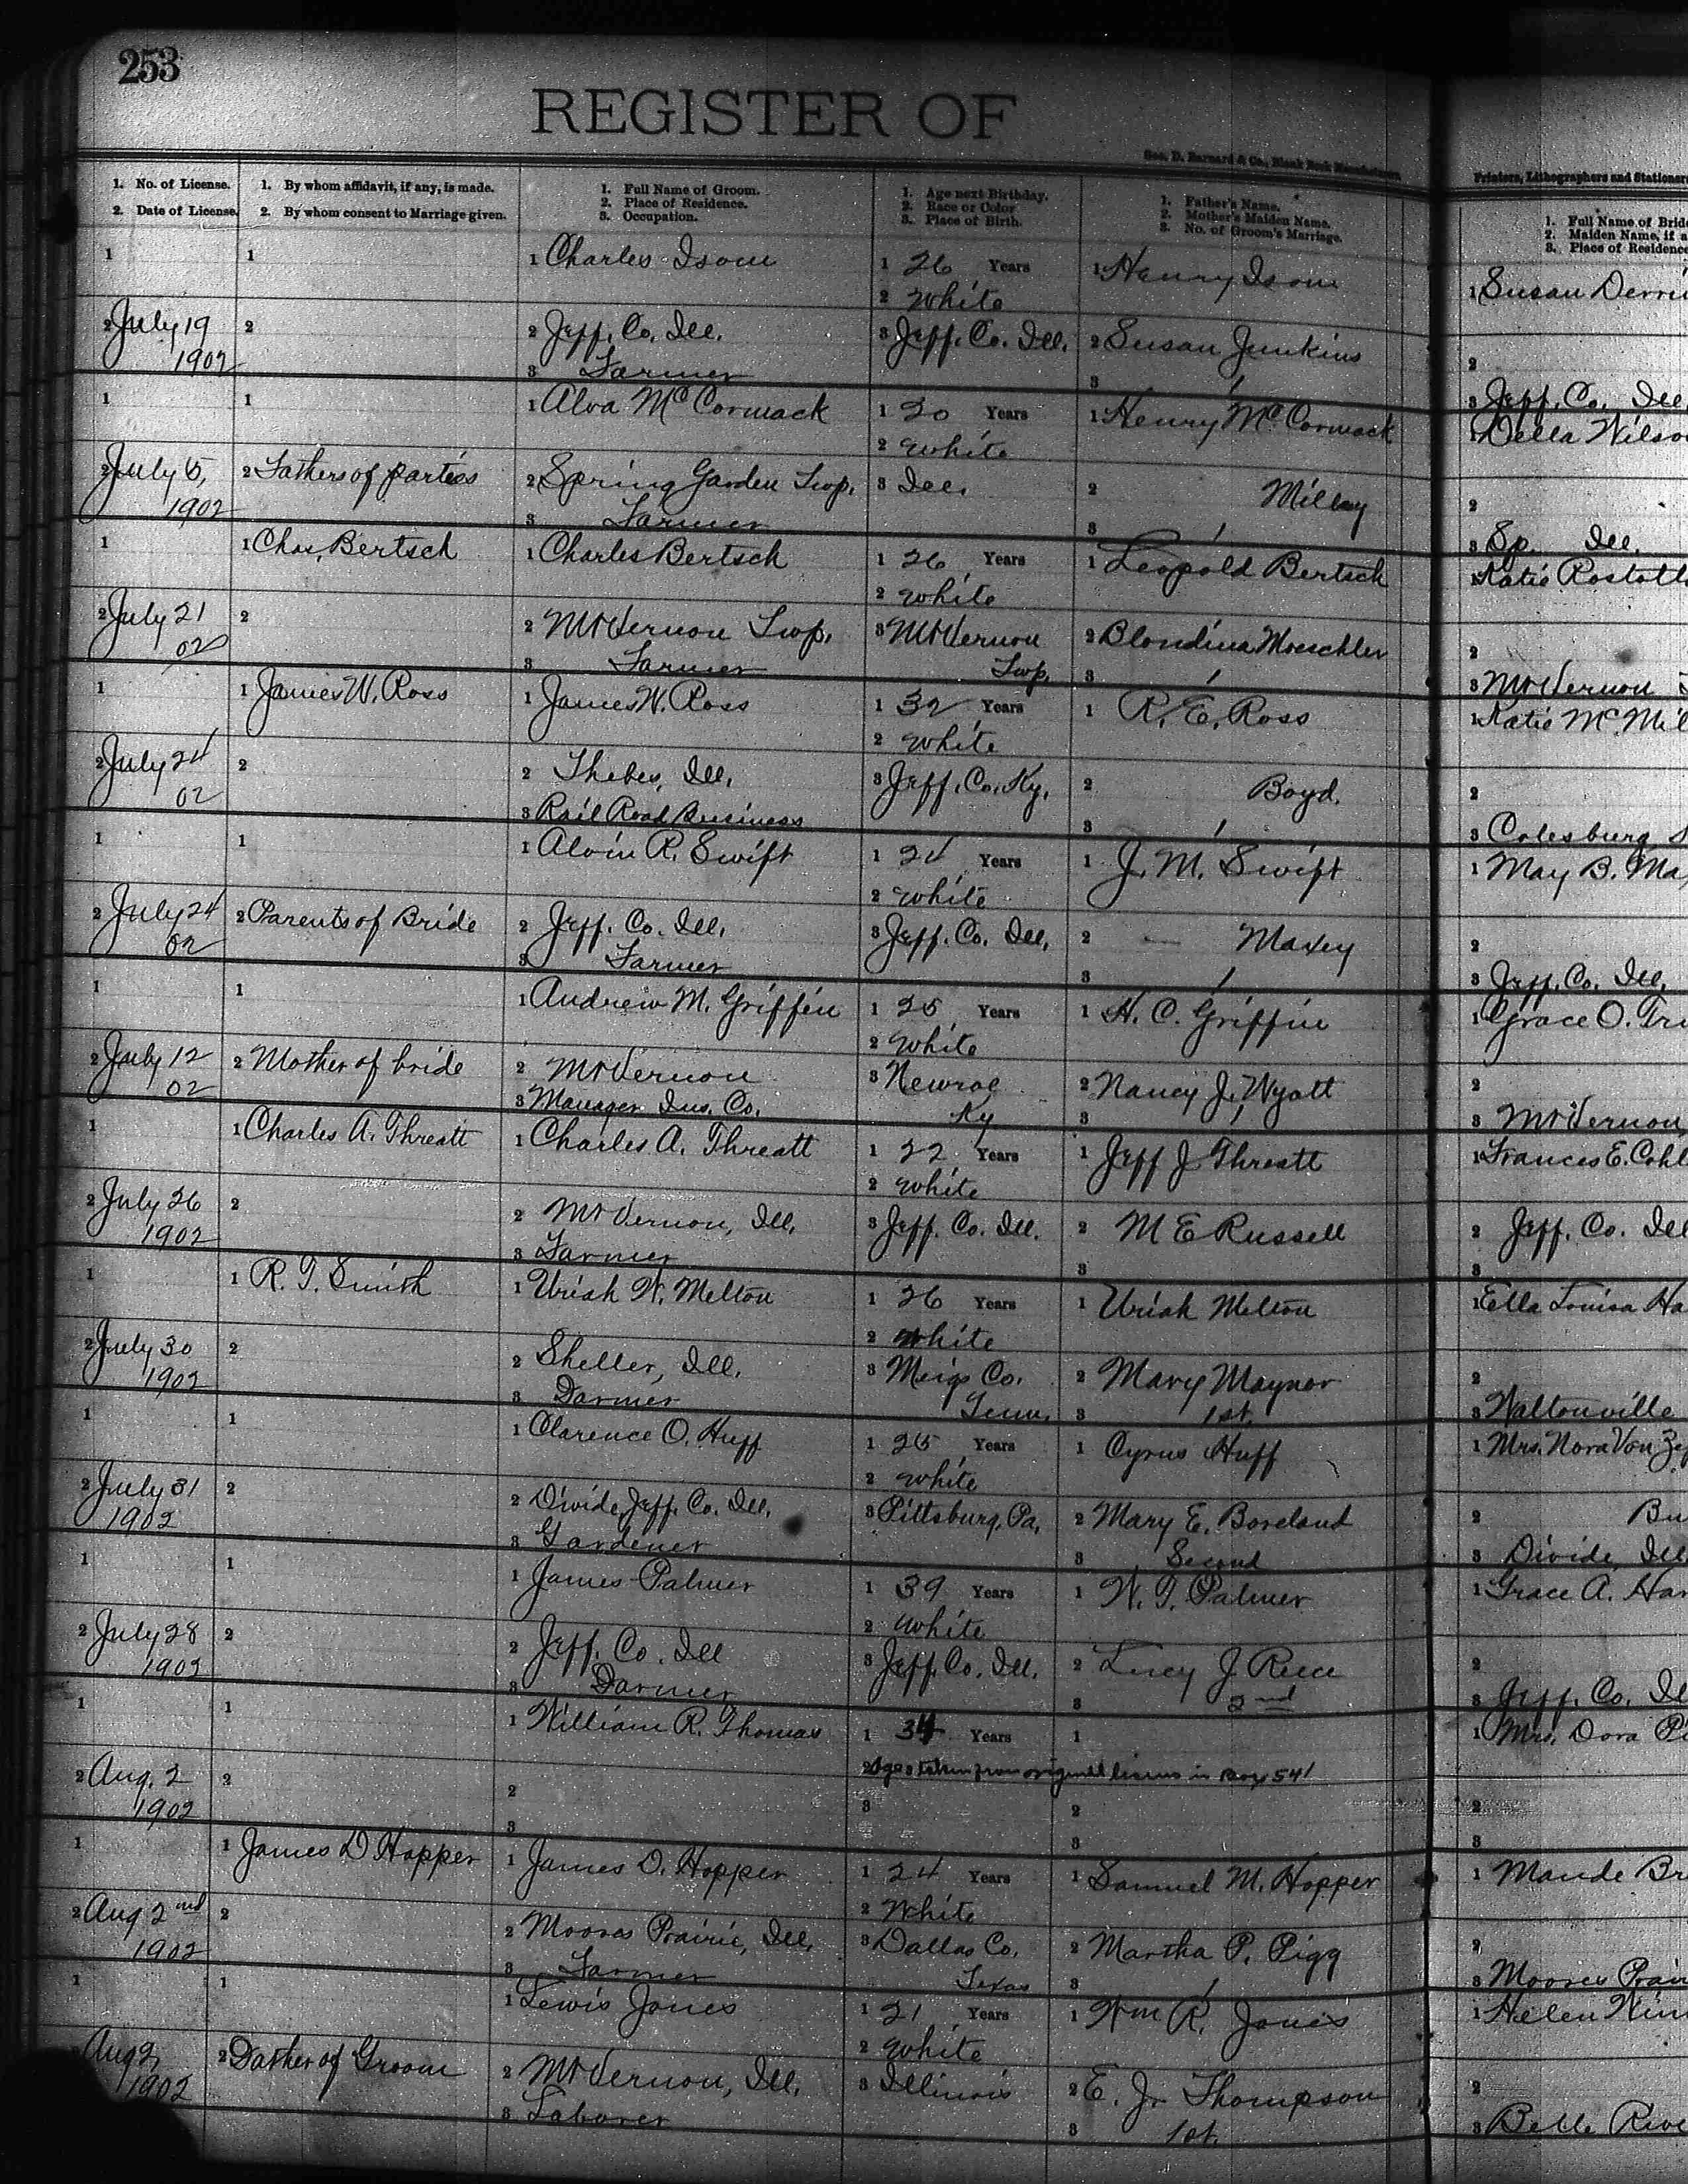 253
REGISTER OF
Geo. D. Barnard & Co., Blank Book Manufacturers,
Printers, Lithographers and Stationers
1. No. of License.
2. Date of License.
1. By whom affidavit, if any, is made.
2. By whom consent to Marriage given.
1. Full Name of Groom.
2. Place of Residence.
3. Occupation.
1. Age next Birthday.
2. Race or Color
3. Place of Birth.
1. Father's Name.
2. Mother's Maiden Name.
3. No. of Groom's Marriage.
1. Full Name of Brid
2. Maiden Name, if a
3. Place of Residence
1
1
1 Charles Isom
1 26 Years
1 Henry Isom
1 Susan Derri
2 White
2 July 19 1902
2
2 Jeff. Co. Ill.
3 Jeff. Co. Ill.
2 Susan Junkins
2
3 Farmer
3 1
3 Jeff. Co. Ill.
1
1
1 Alva McCormack
1 20 Years
1 Henry McCormack
1 Della Wilso
2 White
2 July 5, 1902
2 Fathers of parties
2 Spring Garden Twp.
3 Ill.
2 Millay
2
3 Farmer
3 1
3 Sp. Ill.
1
1 Chas. Bertsch
1 Charles Bertsch
1 26 Years
1 Leopold Bertsch
1 Katie Rostoll
2 White
2 July 21 02
2
2 Mt Vernon Twp.
3 Mt Vernon Twp.
2 Blondina Moeschler
2
3 Farmer
3 1
3 Mt Vernon
1
1 James W. Ross
1 James W. Ross
1 32 Years
1 R. E. Ross
1 Katie McMil
2 White
2 July 24 02
2
2 Thebes, Ill.
3 Jeff. Co. Ky.
2 Boyd.
2
3 Rail Road Business
3 1
3 Colesburg
1
1
1 Alvin R. Swift
1 24 Years
1 J. M. Swift
1 May B. Ma
2 White
2 July 24 02
2 Parents of Bride
2 Jeff. Co. Ill.
3 Jeff. Co. Ill.
2 — Maxey
2
3 Farmer
3 1
3 Jeff. Co. Ill.
1
1
1 Andrew M. Griffin
1 25 Years
1 H. C. Griffin
1 Grace O. Tri
2 White
2 July 12 02
2 Mother of bride
2 Mt Vernon
3 Newroe Ky
2 Nancy J. Wyatt
2
3 Manager Ins. Co.
3 1
3 Mt Vernon,
1
1 Charles A. Threatt
1 Charles A. Threatt
1 22 Years
1 Jeff J Threatt
1 Frances E. Cohl
2 White
2 July 26 1902
2
2 Mt Vernon, Ill.
3 Jeff. Co. Ill.
2 M E Russell
2 Jeff. Co. Ill
3 Farmer
3
3
1
1 R. T. Smith
1 Uriah W. Melton
1 26 Years
1 Uriah Melton
1 Ella Louisa Ha
2 White
2 July 30 1902
2
2 Sheller, Ill.
3 Meigs Co. Tenn.
2 Mary Maynor
2
3 Farmer
3 1st.
3 Waltonville
1
1
1 Clarence O. Huff
1 25 Years
1 Cyrus Huff
1 Mrs. Nora Von Ze
2 White
2 July 31 1902
2
2 Divide, Jeff. Co. Ill.
3 Pittsburg, Pa.
2 Mary E. Boreland
2 Bu
3 Gardener
3 Second
3 Divide, Ill
1
1
1 James Palmer
1 39 Years
1 W. T. Palmer
1 Grace A. Har
2 White
2 July 28 1902
2
2 Jeff. Co. Ill
3 Jeff. Co. Ill.
2 Lucy J Reece
2
3 Farmer
3 2nd
3 Jeff. Co. Il
1
1
1 William R. Thomas
1 34 Years
1
1 Mrs. Dora Pi
2 Ages taken from original license in Box 541
2 Aug. 2 1902
2
2
3
2
2
3
3
3
1
1 James D Hopper
1 James D. Hopper
1 24 Years
1 Samuel M. Hopper
1 Maude Br
2 White
2 Aug 2nd 1902
2
2 Moores Prairie, Ill.
3 Dallas Co. Texas
2 Martha P. Pigg
2
3 Farmer
3 1
3 Moores Prai
1
1
1 Lewis Jones
1 21 Years
1 Wm R. Jones
1 Helen
2 White
2 Aug 2, 1902
2 Father of Groom
2 Mt Vernon, Ill.
3 Illinois
2 E. J. Thompson
2
3 Laborer
3 1st.
3 Belle Rive